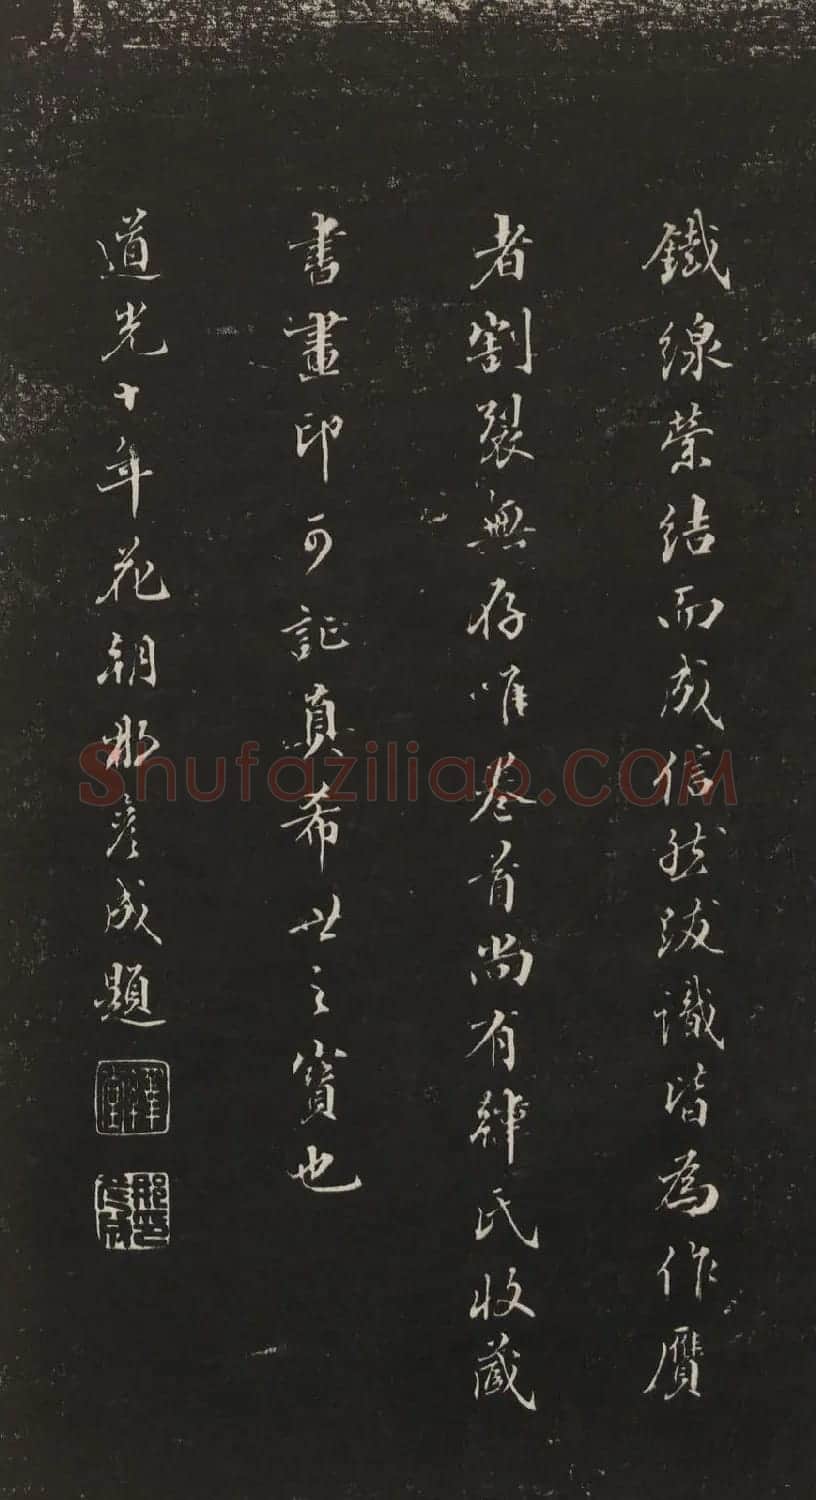 鐵線縈結而成信然跋識皆為作贋
者割裂無存唯卷首尚有韓氏收藏
書畫印可証真希世之寶也
道光十年花朝那彥成題
Shufaziliao.COM